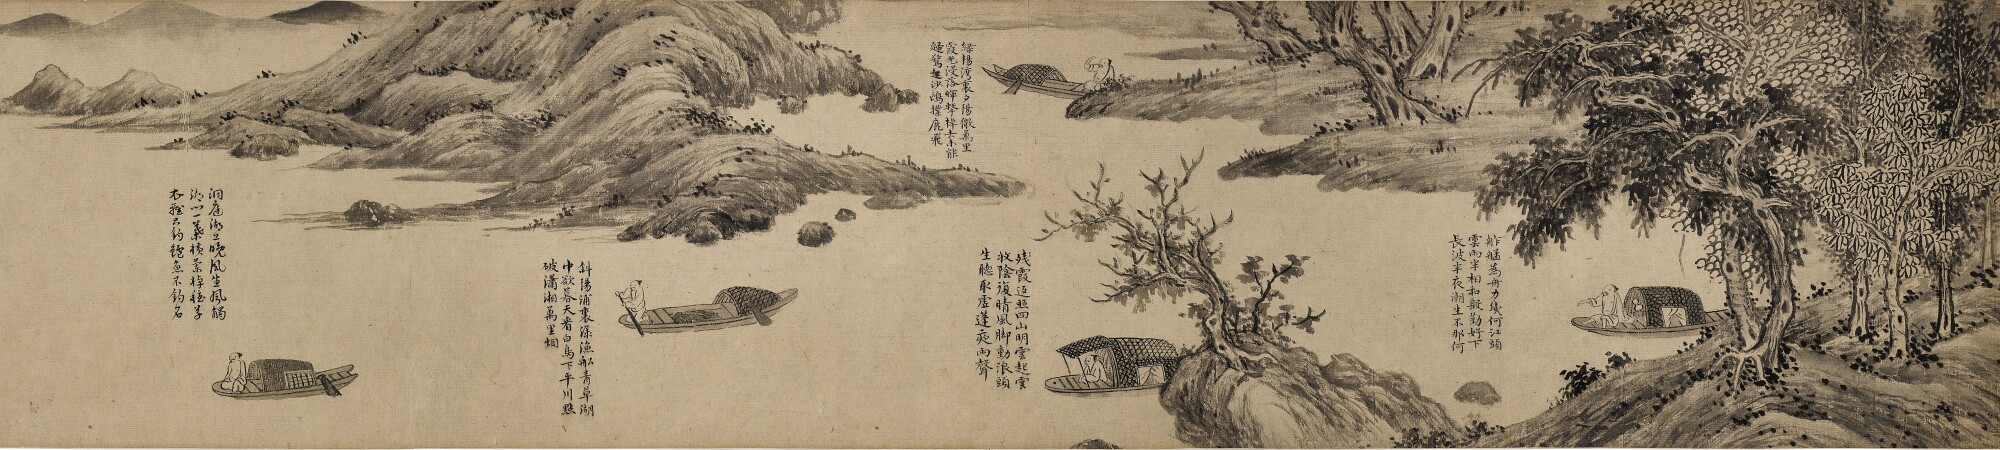 舴艋為舟力幾何江頭
雲雨半相和殷勤好下
長波半夜潮生不那何
殘霞返照四山明雲起雲
收陰復晴風脚動浪頭
生聽取虛篷夜雨聲
綠楊灣裏夕陽微萬里
霞光浸落暉擊棹去未能
歸驚起沙鷗撲鹿飛
斜陽浦裏漁船青草湖
中欲暮天看白鳥下平川點
破瀟湘萬里烟
洞庭湖上晚風生風觸
湖心一葉橫蘭棹穩草
衣輕只釣鱸魚不釣名